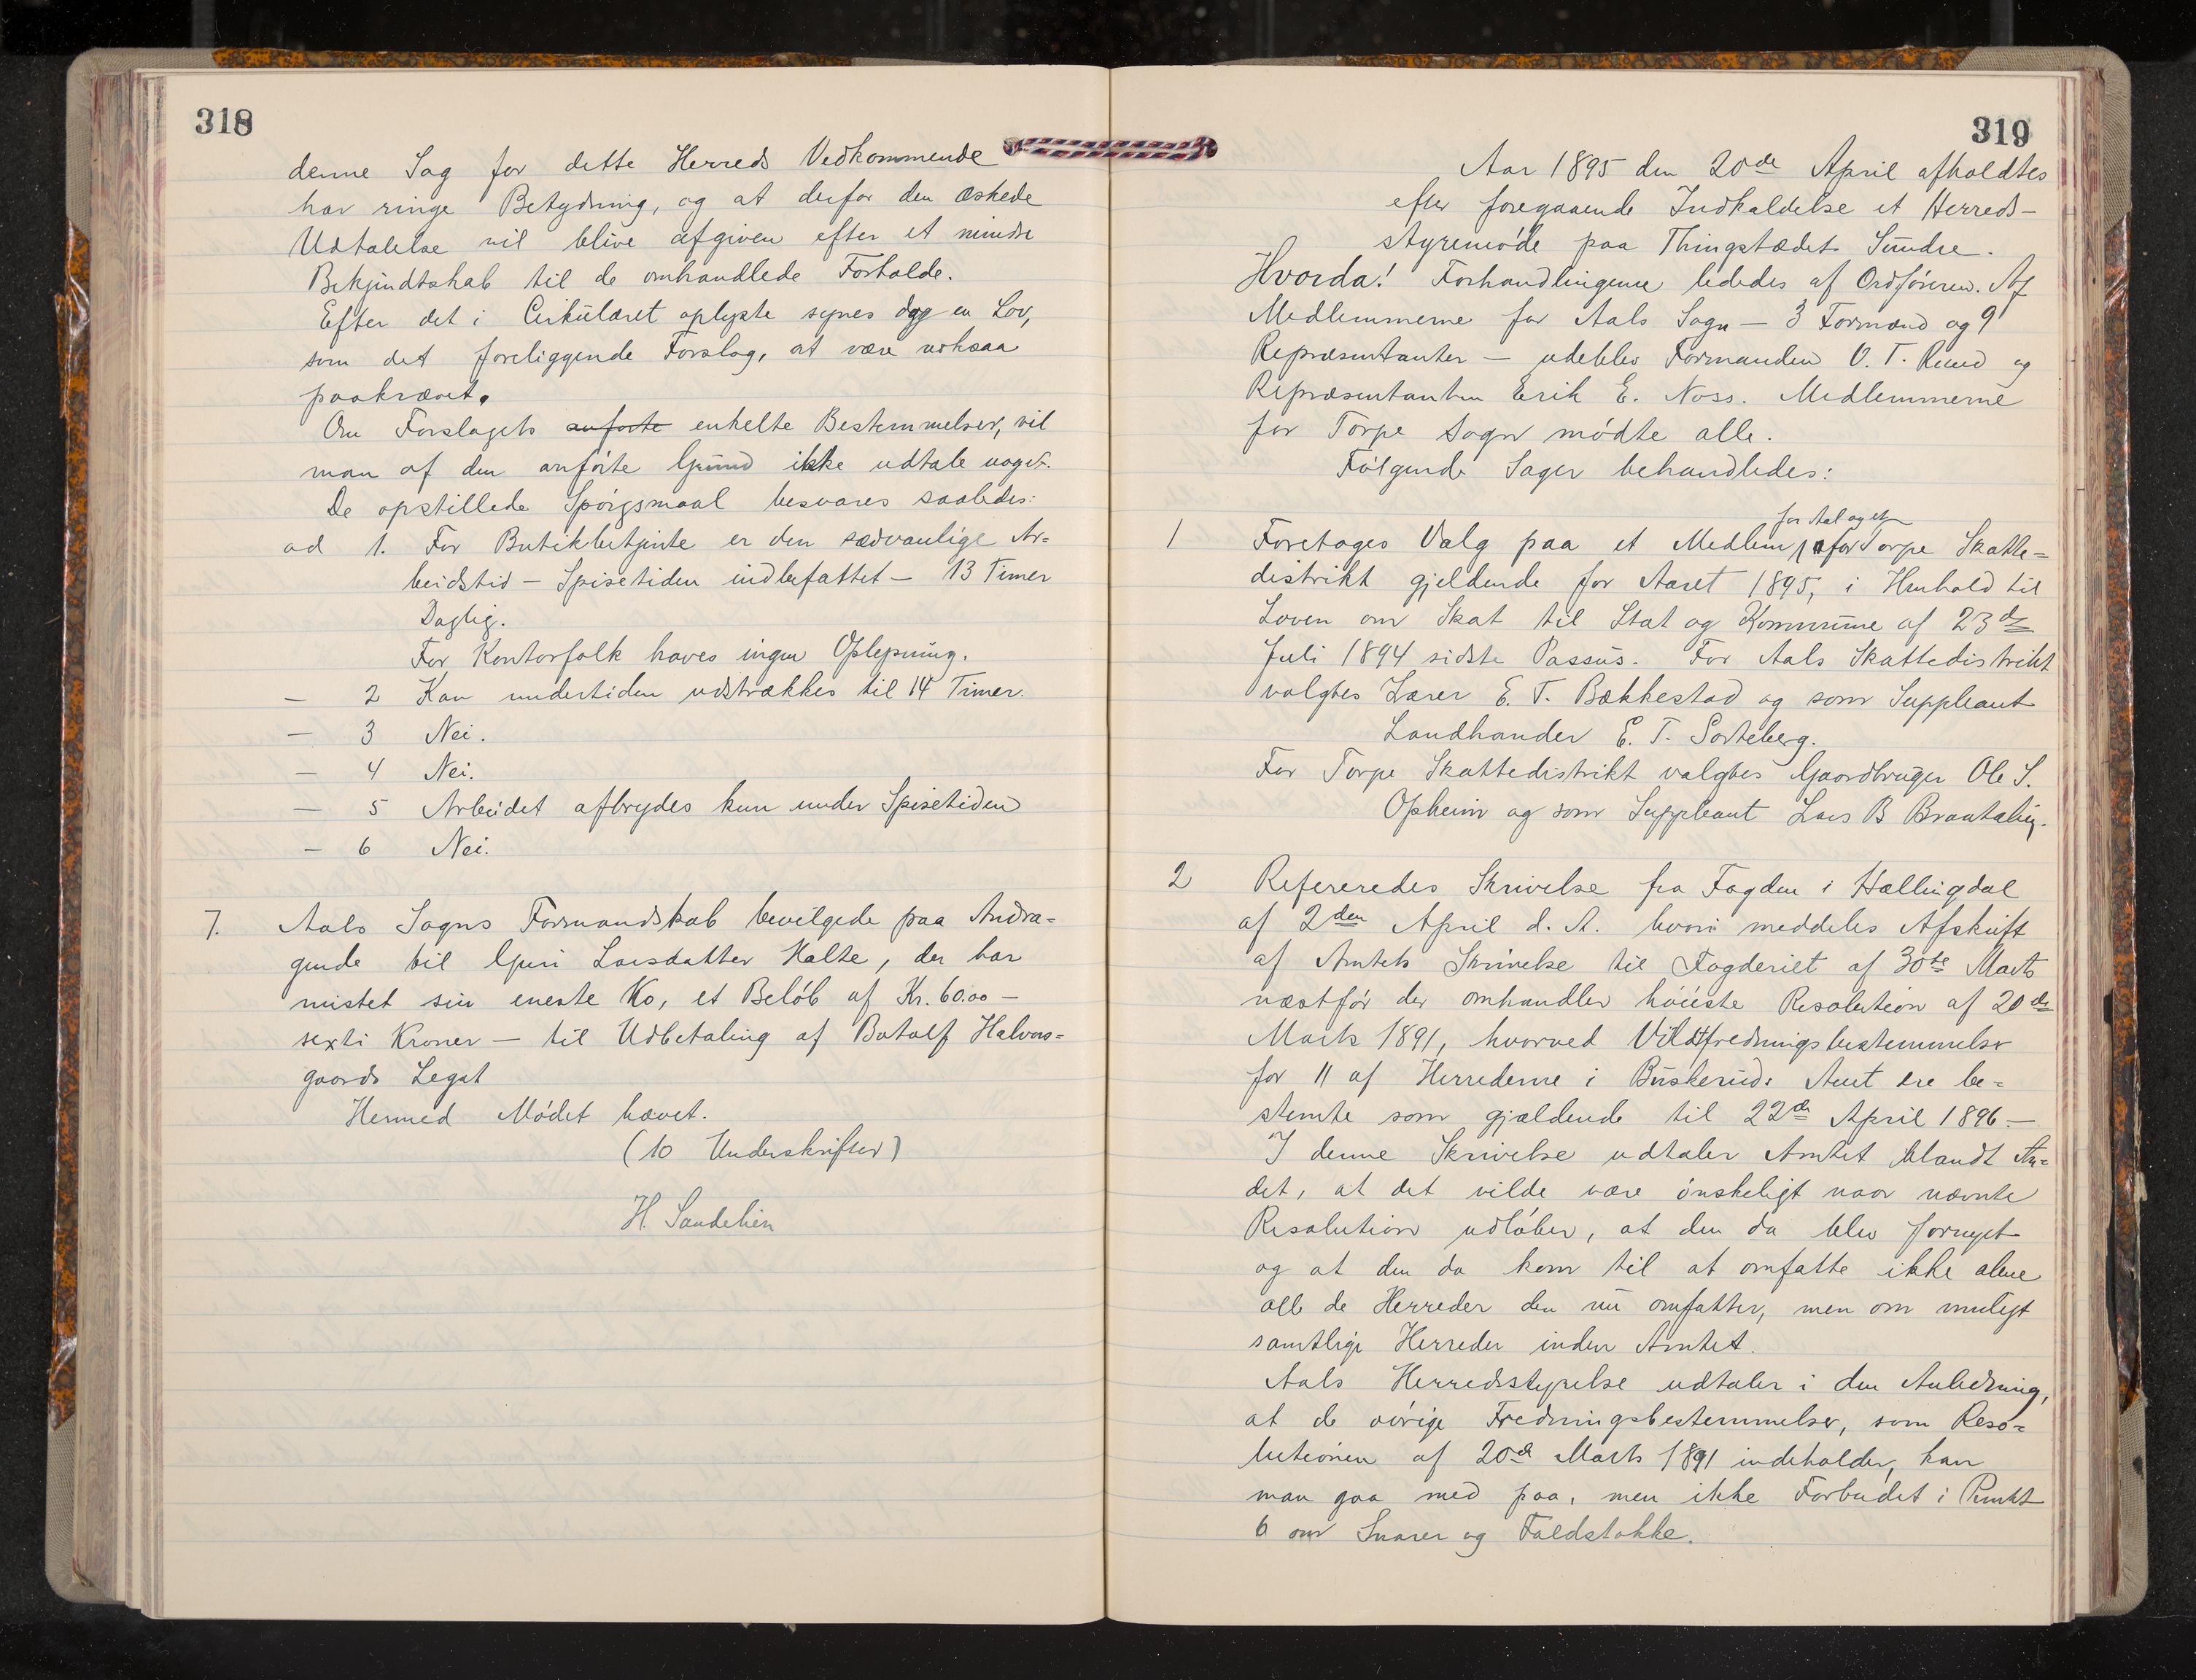 318
denne Sag for dette Herreds Vedkommende
har ringe Betydning, og at derfor den æskede
Udtalelse vil blive afgiven efter et mindre
Bekjendtskab til de omhandlede Forholde.
Efter det i Cirkulæret oplyste synes dog en Lov,
som det foreliggende Forslag, at være noksaa
paakrævet.
Om Forslagets anførte enkelte Bestemmelser, vil
man af den anførte Grund ikke udtale noget.
De opstillede Spørgsmaal besvares saaledes:
ad 1. For Butikbetjente er den sædvanlige Ar=
beidstid – Spisetiden indbefattet – 13 Timer
Daglig.
For Kontorfolk haves ingen Oplysning.
— 2 Kan undertiden udstrækkes til 14 Timer.
— 3 Nei.
— 4 Nei.
— 5 Arbeidet afbrydes kun under Spisetiden
— 6 Nei.
7. Aals Sogns Formandskab bevilgede paa Andra=
gende til Guri Larsdatter Halte, der har
mistet sin eneste Ko, et Beløb af Kr. 60.00 –
sexti Kroner – til Udbetaling af Botolf Halvors=
gaards Legat
Hermed Mødet hævet.
(10 Underskrifter)
H. Sandelien
319
Aar 1895 den 20de April afholdtes
efter foregaaende Indkaldelse et Herreds-
styremøde paa Thingstædet Sundre.
Hvorda! Forhandlingerne lededes af Ordføreren. Af
Medlemmerne for Aals Sogn – 3 Formænd og 9
Repræsentanter – udeblev Formanden O. T. Ruud og
Repræsentanten Erik E. Noss. Medlemmerne
for Torpe Sogn mødte alle.
Følgende Sager behandledes:
for Aal og et
1 Foretoges Valg paa et Medlem for Torpe Skatte=
distrikt gjeldende for Aaret 1895, i Henhold til
Loven om Skat til Stat og Kommune af 23de
Juli 1894 sidste Passus. For Aals Skattedistrikt
valgtes Lærer E. T. Bækkestad og som Suppleant
Landhander E. T. Sorteberg.
For Torpe Skattedistrikt valgtes Gaardbruger Ole S.
Opheim og som Suppleant Lars B Braatalien.
2 Refereredes Skrivelse fra Fogden i Hallingdal
af 2den April d. A. hvori meddeles Afskrift
af Amtets Skrivelse til Fogderiet af 30te Marts
næstfør der omhandler høieste Resolution af 20de
Marts 1891, hvorved Vildtfredningsbestemmelser
for 11 af Herrederne i Buskeruds Amt ere be=
stemte som gjældende til 22de April 1896. –
I denne Skrivelse udtaler Amtet blandt An=
det, at det vilde være ønskeligt naar nævnte
Resolution udløber, at den da blev fornyet
og at den da kom til at omfatte ikke alene
alle de Herreder den nu omfatter, men om muligt
samtlige Herreder inden Amtet.
Aals Herredsstyrelse udtaler i den Anledning,
at de øvrige Fredningsbestemmelser, som Reso=
lutionen af 20de Marts 1891 indeholder, kan
man gaa med paa, men ikke Forbudet i Punkt
6 om Snarer og Faldstokke.